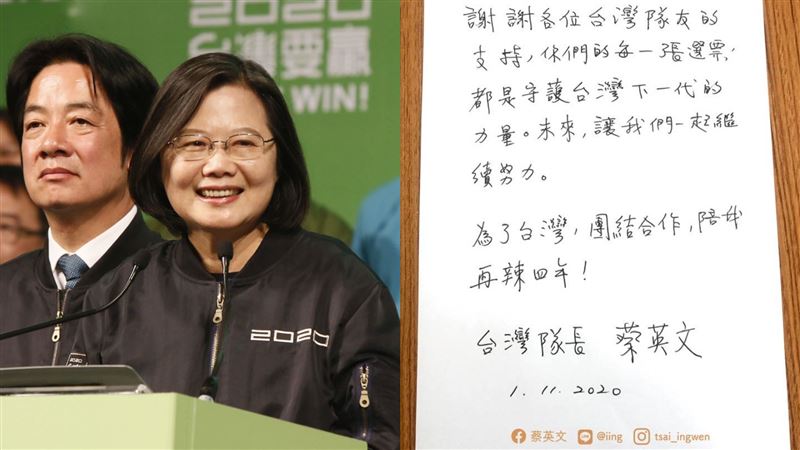 2020
台灣要贏
WIN!
2020
謝謝各位台灣隊友的
支持，你們的每一張選票，
都是守護台灣下一代的
力量。未來，讓我們一起繼
續努力。
為了台灣，團結合作，陪我
再辣四年！
台灣隊長 蔡英文
1.11.2020
蔡英文 @iing tsai_ingwen